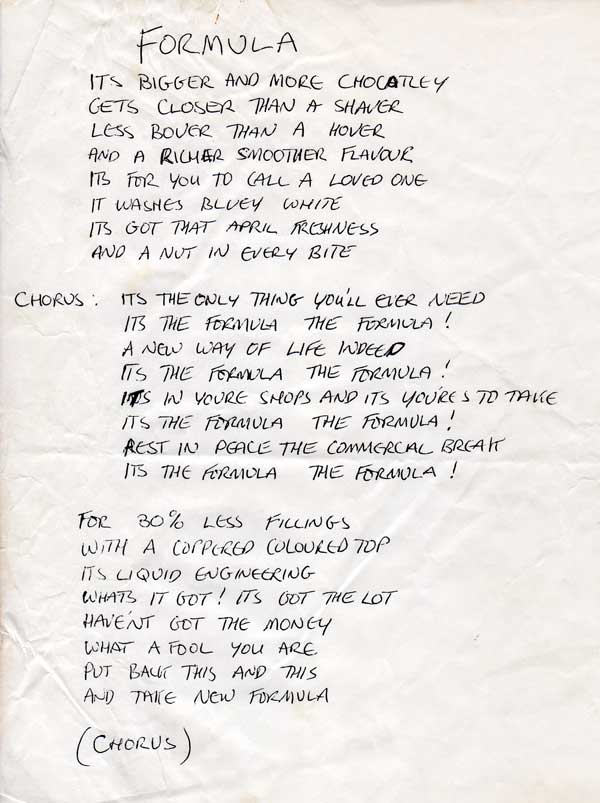 FORMULA
ITS BIGGER AND MORE CHOCATLEY
GETS CLOSER THAN A SHAVER
LESS BOVER THAN A HOVER
AND A RICHER SMOOTHER FLAVOUR
ITS FOR YOU TO CALL A LOVED ONE
IT WASHES BLUEY WHITE
ITS GOT THAT APRIL FRESHNESS
AND A NUT IN EVERY BITE
CHORUS: ITS THE ONLY THING YOU'LL EVER NEED
ITS THE FORMULA THE FORMULA!
A NEW WAY OF LIFE INDEED
ITS THE FORMULA THE FORMULA!
ITS IN YOURE SHOPS AND ITS YOU'RES TO TAKE
ITS THE FORMULA THE FORMULA!
REST IN PEACE THE COMMERCAL BREAK
ITS THE FORMULA THE FORMULA!
FOR 30% LESS FILLINGS
WITH A COPPERED COLOURED TOP
ITS LIQUID ENGINEERING
WHATS IT GOT! ITS GOT THE LOT
HAVE'NT GOT THE MONEY
WHAT A FOOL YOU ARE
PUT BACK THIS AND THIS
AND TAKE NEW FORMULA
(CHORUS)